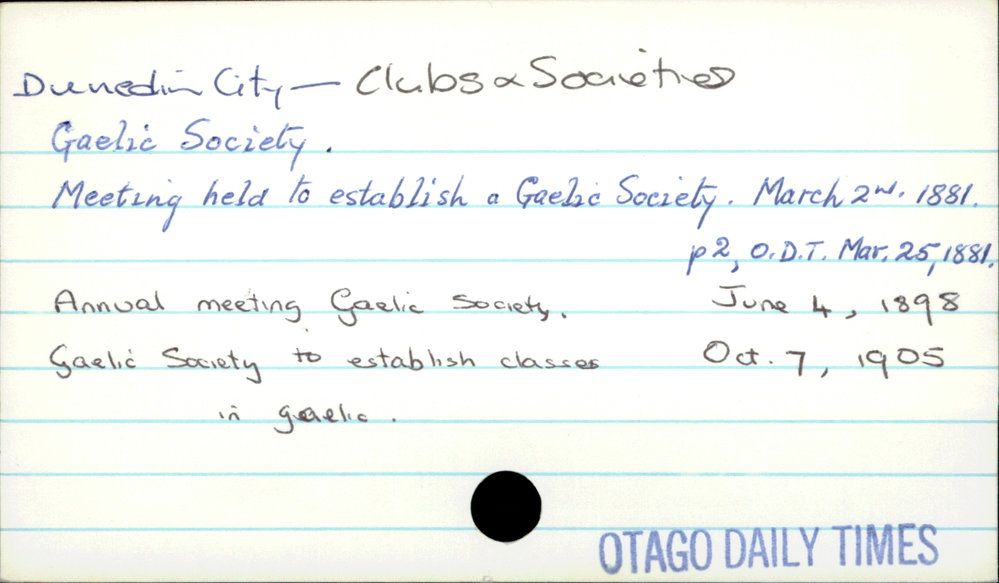 Dunedin City — Clubs & Societies
Gaelic Society.
Meeting held to establish a Gaelic Society. March 2nd. 1881.
p2, O.D.T. Mar. 25, 1881.
Annual meeting Gaelic Society. June 4, 1898
Gaelic Society to establish classes Oct. 7, 1905
in gaelic.
OTAGO DAILY TIMES